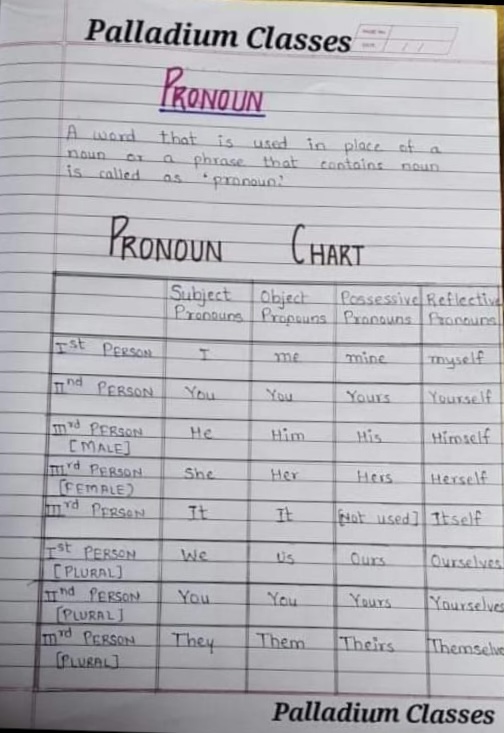 Palladium Classes
PRONOUN
A word that is used in place of a
noun or a phrase that contains noun
is called as 'pronoun.'
PRONOUN CHART
Subject Pronouns Object Pronouns Possessive Pronouns Reflective Pronouns
Ist PERSON I me mine myself
IInd PERSON You You Yours Yourself
IIIrd PERSON [MALE] He Him His Himself
IIIrd PERSON [FEMALE) She Her Hers Herself
IIIrd PERSON It It [Not used] Itself
Ist PERSON [PLURAL] We Us Ours Ourselves
IInd PERSON [PLURAL] You You Yours Yourselves
IIIrd PERSON [PLURAL] They Them Theirs Themselve
Palladium Classes